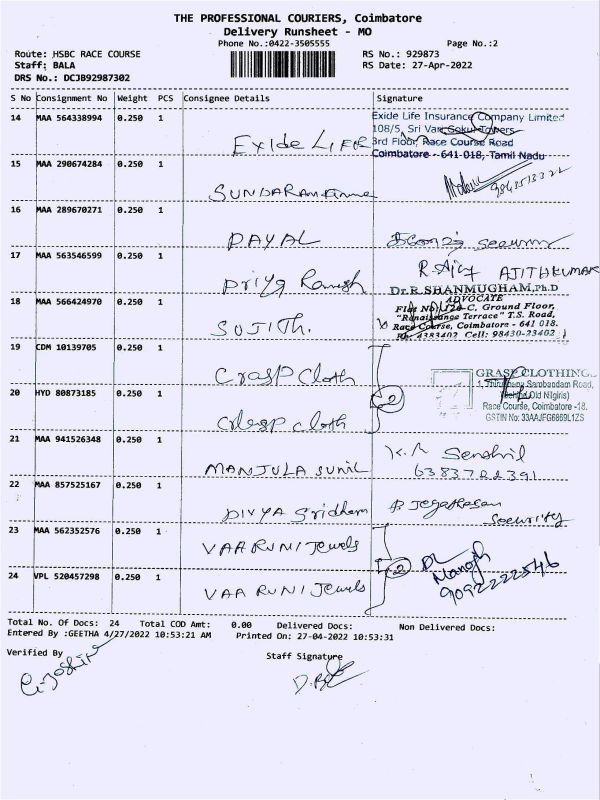 THE PROFESSIONAL COURIERS, Coimbatore
Delivery Runsheet - MO
Phone No.:0422-3505555
Page No.:2
Route: HSBC RACE COURSE
RS No.: 929873
Staff: BALA
RS Date: 27-Apr-2022
DRS No.: DCJB92987302
S No Consignment No Weight PCS Consignee Details Signature
14 MAA 564338994 0.250 1
EXide LIFE
Exide Life Insurance Company Limited
108/5, Sri Vari Gokul Towers
3rd Floor, Race Course Road
Coimbatore - 641 018, Tamil Nadu
15 MAA 290674284 0.250 1
16 MAA 289670271 0.250 1
PAYAL
17 MAA 563546599 0.250 1
Priya Ramesh
AJITHKUMAR
18 MAA 566424970 0.250 1
SUJITH.
Dr.R.SHANMUGHAM,Ph.D
ADVOCATE
Flat No. 120-C, Ground Floor,
"Renaissance Terrace" T.S. Road,
Race Course, Coimbatore - 641 018.
Ph: 4383402 Cell: 98430-23402
19 CDM 10139705 0.250 1
Crasp Cloth
GRASP CLOTHING
Sambandam Road,
(Behind Old Nilgiris)
Race Course, Coimbatore -18.
GSTIN No: 33AAJFG6869L1ZS
20 HYD 80873185 0.250 1
cloth
2
21 MAA 941526348 0.250 1
MANJULA SUNIL
K.R Senthil
6383722391
22 MAA 857525167 0.250 1
DIVYA Sridharn
B Jegatheesan
Security
23 MAA 562352576 0.250 1
VAARUNI Jewels
24 VPL 520457298 0.250 1
VAARUNI Jewels
2
Manojh
9092222546
Total No. Of Docs: 24 Total COD Amt: 0.00 Delivered Docs: Non Delivered Docs:
Entered By :GEETHA 4/27/2022 10:53:21 AM Printed On: 27-04-2022 10:53:31
Verified By
Staff Signature